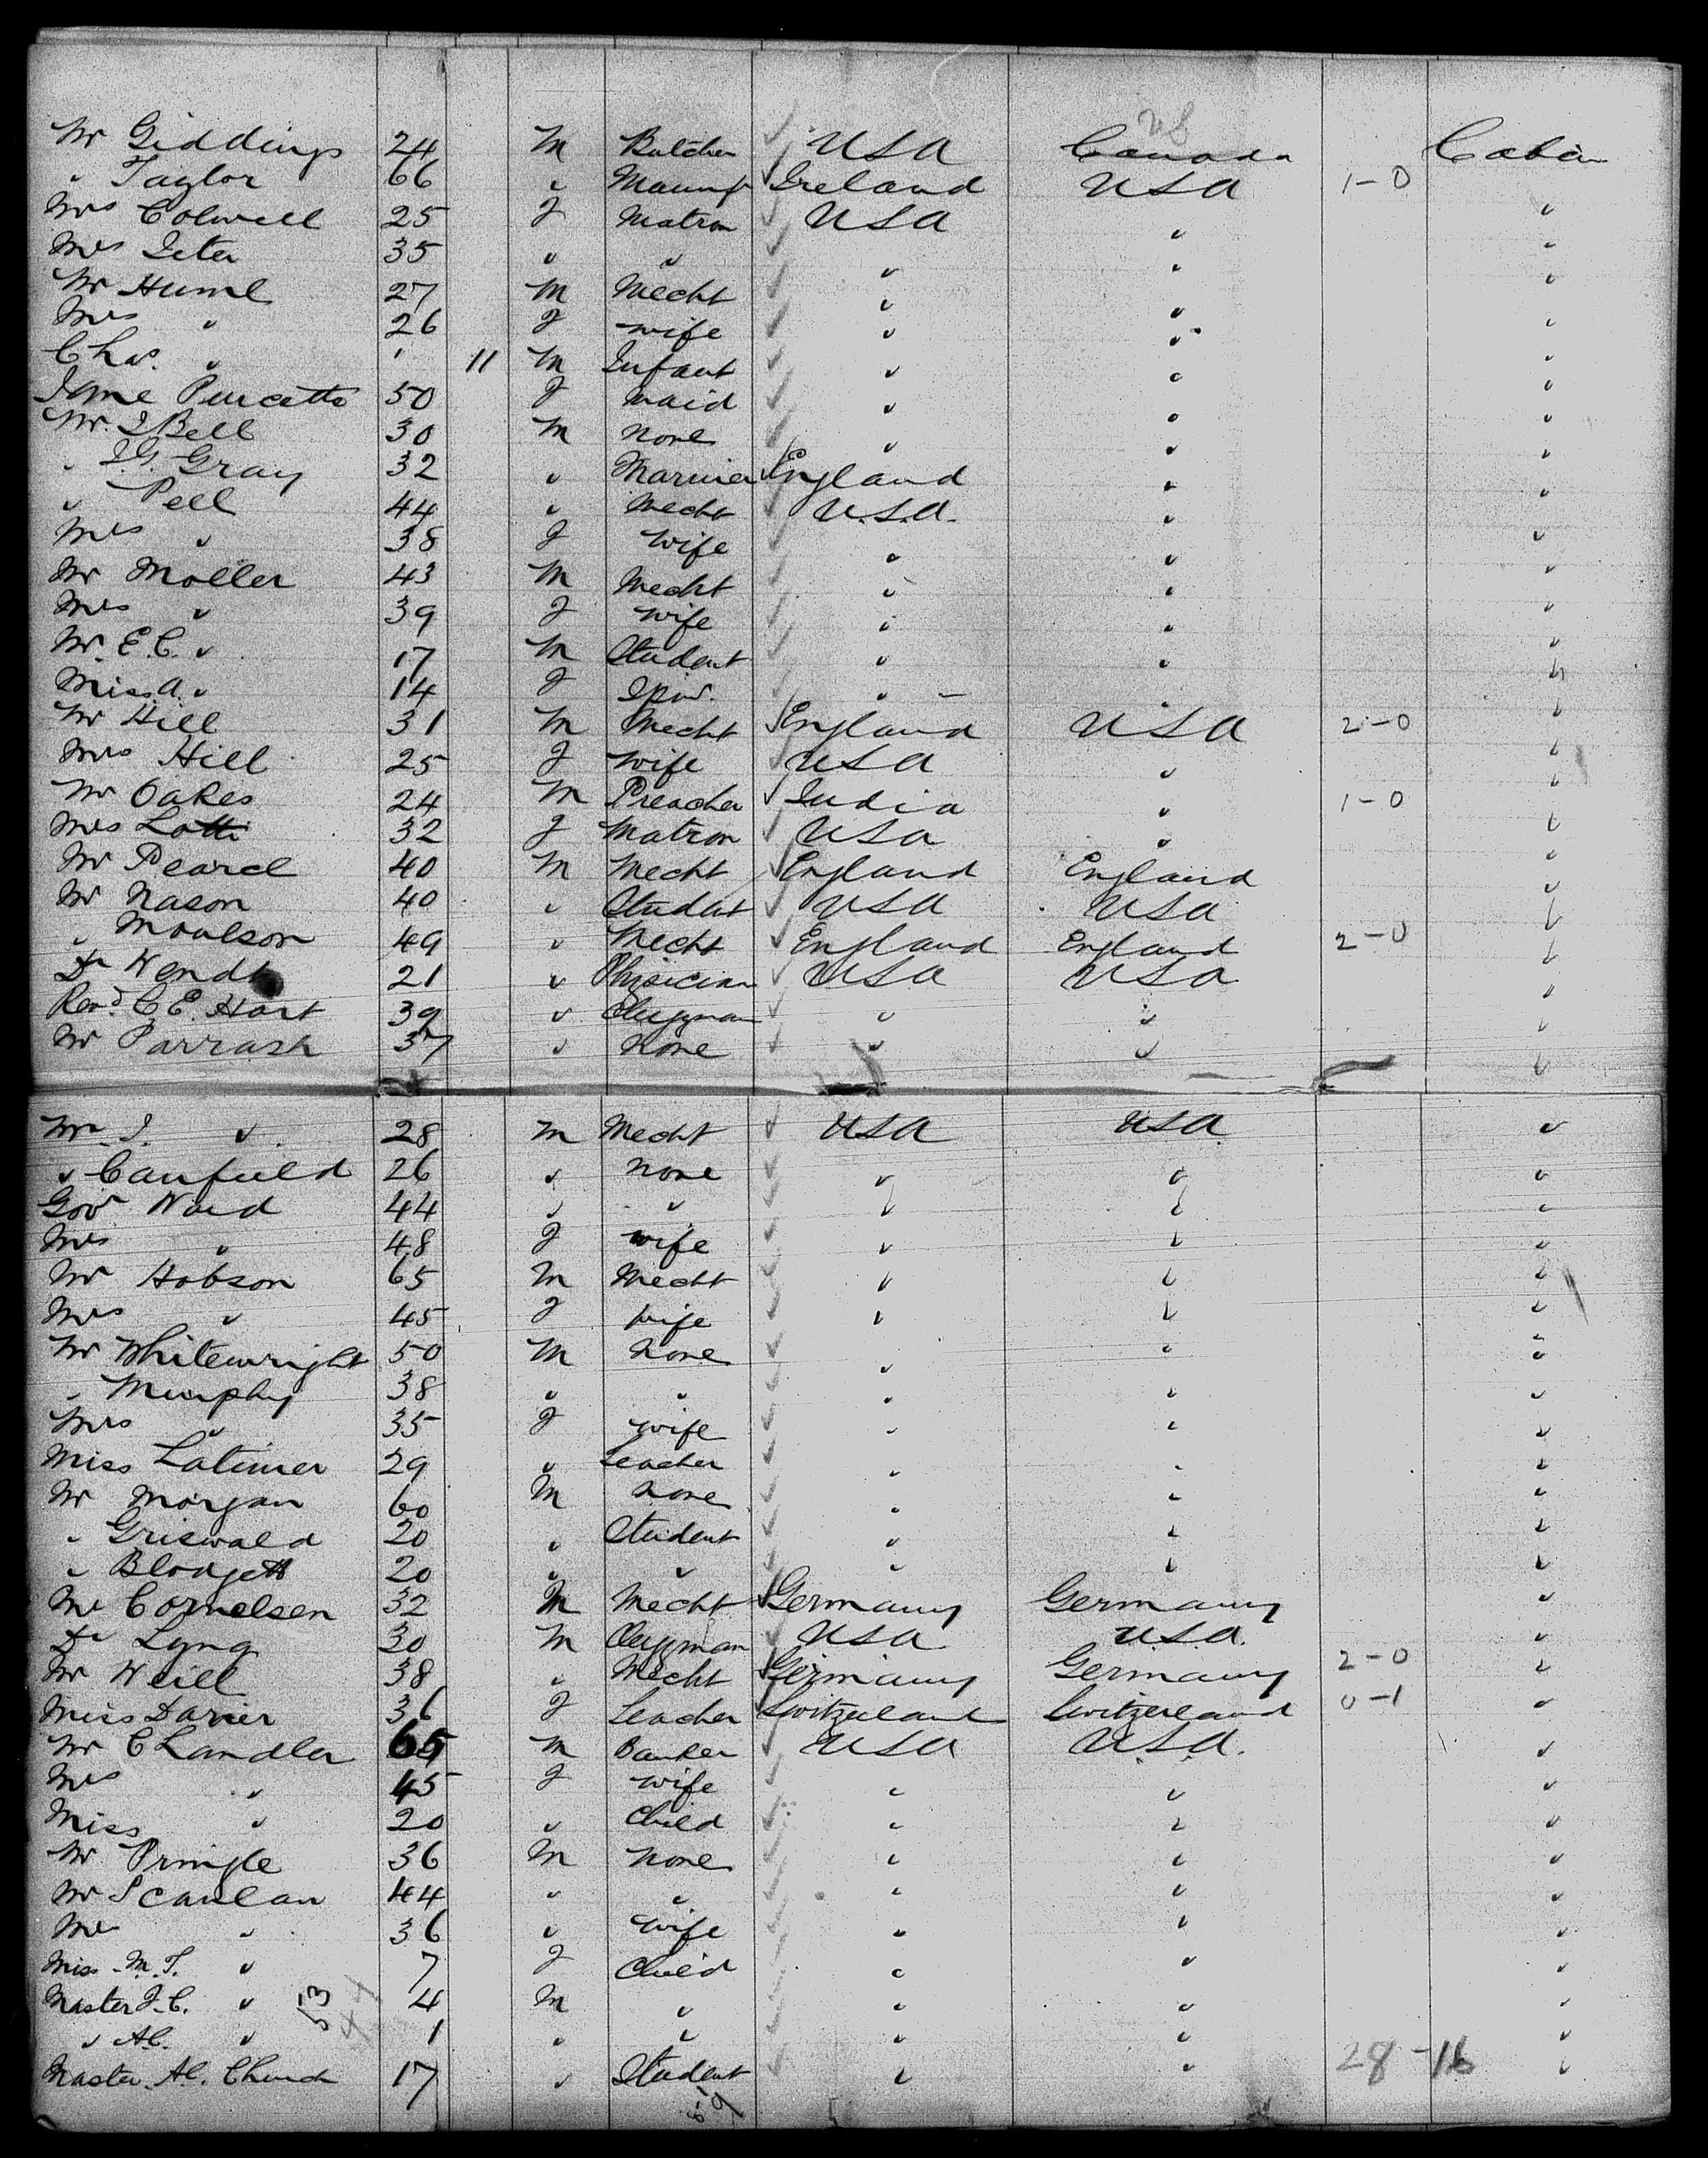 Mr Giddings 24 M Butcher USA Canada Cabin
" Taylor 66 " Manuf Ireland USA 1-0
Mrs Colwell 25 F Matron USA " "
Mrs Jeter 35 " " " " "
Mr Hume 27 M Mecht " " "
Mrs " 26 F wife " " "
Chas. " " 11 M Infant " " "
Jane Purcette 50 F maid " " "
Mr. J Bell 30 M none " " "
" J.G. Gray 32 " Mariner England " "
" Pell 44 " Mecht U.S.A. " "
Mrs " 38 F Wife " " "
Mr Moller 43 M Mecht " " "
Mrs " 39 F Wife " " "
Mr. E.C. " 17 M Student " " "
Miss A. " 14 F Spin. " " "
Mr Hill 31 M Mecht England USA 2-0 "
Mrs Hill 25 F wife USA " "
Mr Oakes 24 M Preacher India " 1-0 "
Mrs Lotti 32 F Matron USA " "
Mr Pearce 40 M Mecht England England "
Mr Nason 40 " Student USA USA "
" Moulson 49 " Mecht England England 2-0 "
Dr Wendt 21 " Physician USA USA "
Revd. C.E. Hart 39 " Clergyman " " "
Mr Parrash 37 " none " " "
Mr. J. " 28 M Mecht USA USA "
" Canfield 26 " none " " "
Gov Ward 44 " " " " "
Mrs " 48 F wife " " "
Mr Hobson 65 M Mecht " " "
Mrs " 45 F wife " " "
Mr Whitewright 50 M none " " "
" Murphy 38 " " " " "
Mrs " 35 F wife " " "
Miss Latimer 29 " Teacher " " "
Mr Morgan 60 M none " " "
" Griswald 20 " Student " " "
" Blodgett 20 " " " " "
Mr Cornelsen 32 M Mecht Germany Germany "
Dr Lyng 30 M Clergyman USA U.S.A. "
Mr Weill 38 " Mecht Germany Germany 2-0 "
Miss Darier 36 F Teacher Switzerland Switzerland 0-1 "
Mr Chandler 65 M Banker USA U.S.A. "
Mrs " 45 F wife " " "
Miss " 20 " Child " " "
Mr Pringle 36 M none " " "
Mr Scanlan 44 " " " " "
Mrs " 36 " wife " " "
Miss M.T. " 7 F Child " " "
Master J.C. " 53 4 M " " " "
" A.C. " 1 " " " " 28-16 "
Master Al. Church 17 " Student " " "